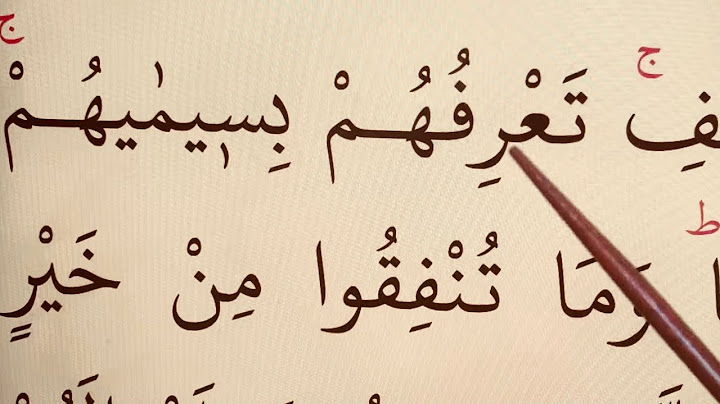 تَعْرِفُهُمْ بِسٖيمٰيهُمْ ۚ
وَمَا تُنْفِقُوا مِنْ خَيْرٍ